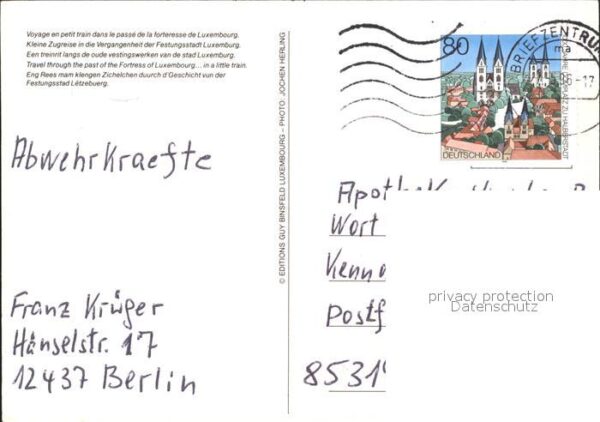 Voyage en petit train dans le passé de la forteresse de Luxembourg.
Kleine Zugreise in die Vergangenheit der Festungsstadt Luxemburg.
Een treinrit langs de oude vestingswerken van de stad Luxemburg.
Travel through the past of the Fortress of Luxembourg... in a little train.
Eng Rees mam klengen Zichelchen duurch d'Geschicht vun der
Festungsstad Lëtzebuerg.
Abwehrkraefte
Franz Krüger
Hänselstr. 17
12437 Berlin
© EDITIONS GUY BINSFELD LUXEMBOURG – PHOTO: JOCHEN HERLING
80
DEUTSCHLAND
BRIEFZENTRUM
ma
-17
Wort
Kenn
Postf
8531
privacy protection
Datenschutz